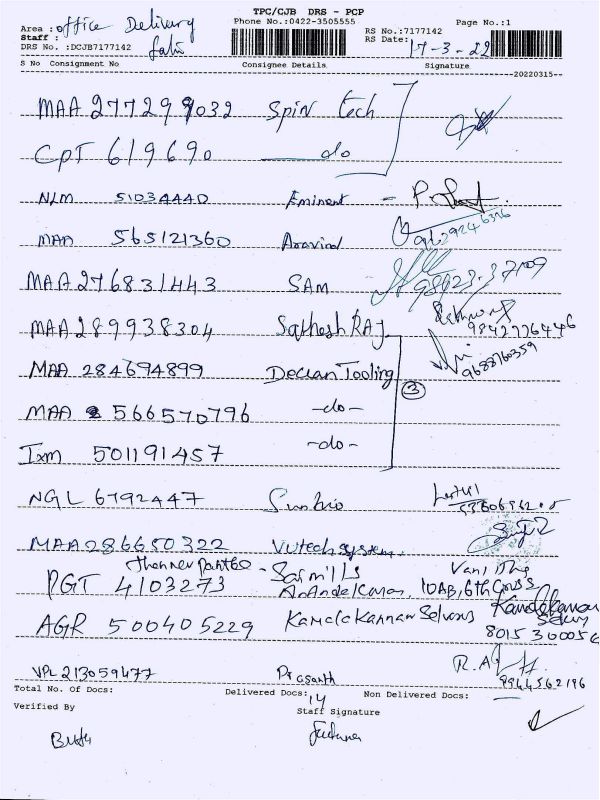 TPC/CJB DRS - PCP
Area : office Delivery Phone No.:0422-3505555 Page No.:1
Staff : RS No.:7177142
DRS No. :DCJB7177142 RS Date: 17-3-22
S No Consignment No Consignee Details Signature
20220315
MAA 277299032 Spin tech
CPT 619690 do
NLM 51034440 Eminent - P.
MAA 565121360 Aravind 9629246376
MAA 276831443 SAM
MAA 289938304 Sathosh RAJ 9842726446
MAA 284694899 Deccan Tooling 9688760359
MAA 566570796 -do- 3
Txm 501191457 -do-
NGL 6792447
MAA 286650322 Vutech system.
PGT 4103273 - Saimills
10AB, 6th Cross
AGR 500405229 Kamalakannan Selvas Kamalakannan
8015300056
VPL 213059477 Prasanth R.A
9944562196
Total No. of Docs: Delivered Docs: 14 Non Delivered Docs:
Verified By Staff Signature